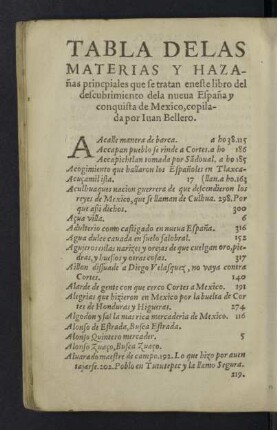 TABLA DELAS
MATERIAS Y HAZA-
ñas principales que se tratan eneste libro del
descubrimiento dela nueua España y
conquista de Mexico, copila-
da por Iuan Bellero.
Acalle manera de barca. a ho 38.115
Accapan pueblo se rinde a Cortes. a ho 186
Accapichtlan tomada por Sãdoual, a ho 185
Acogimiento que hallaron los Españoles en Tlaxca-
Acuçamil isla. 17 (llan. a ho. 163
Aculhuaques nacion guerrera de que descendieron los
reyes de Mexico, que se llaman de Culhua. 298. Por
que assi dichos. 300
Agua villa. 6
Adulterio como castigado en nueua España. 316
Agua dulce canada en suelo salobral. 152
Agujeros enlas narizes y orejas de que cuelgan oro, pie
dras, y huessos y otras cosas. 317
Aillon dissuade a Diego Velasquez, no vaya contra
Cortes. 140
Alarde de gente con que cerco Cortes a Mexico. 191
Alegrias que hizieron en Mexico por la buelta de Cor
tes de Honduras y Higueras. 274
Algodon y sal la mas rica mercaderia de Mexico. 116
Alonso de Estrada, Busca Estrada.
Alonso Quintero mercader, 5
Alonso Zuaço, Busca Zuaço.
Aluarado maestre de campo. 192. Lo que hizo por auen
tajarse. 202. Poblo en Tututepec y la llamo Segura.
219.